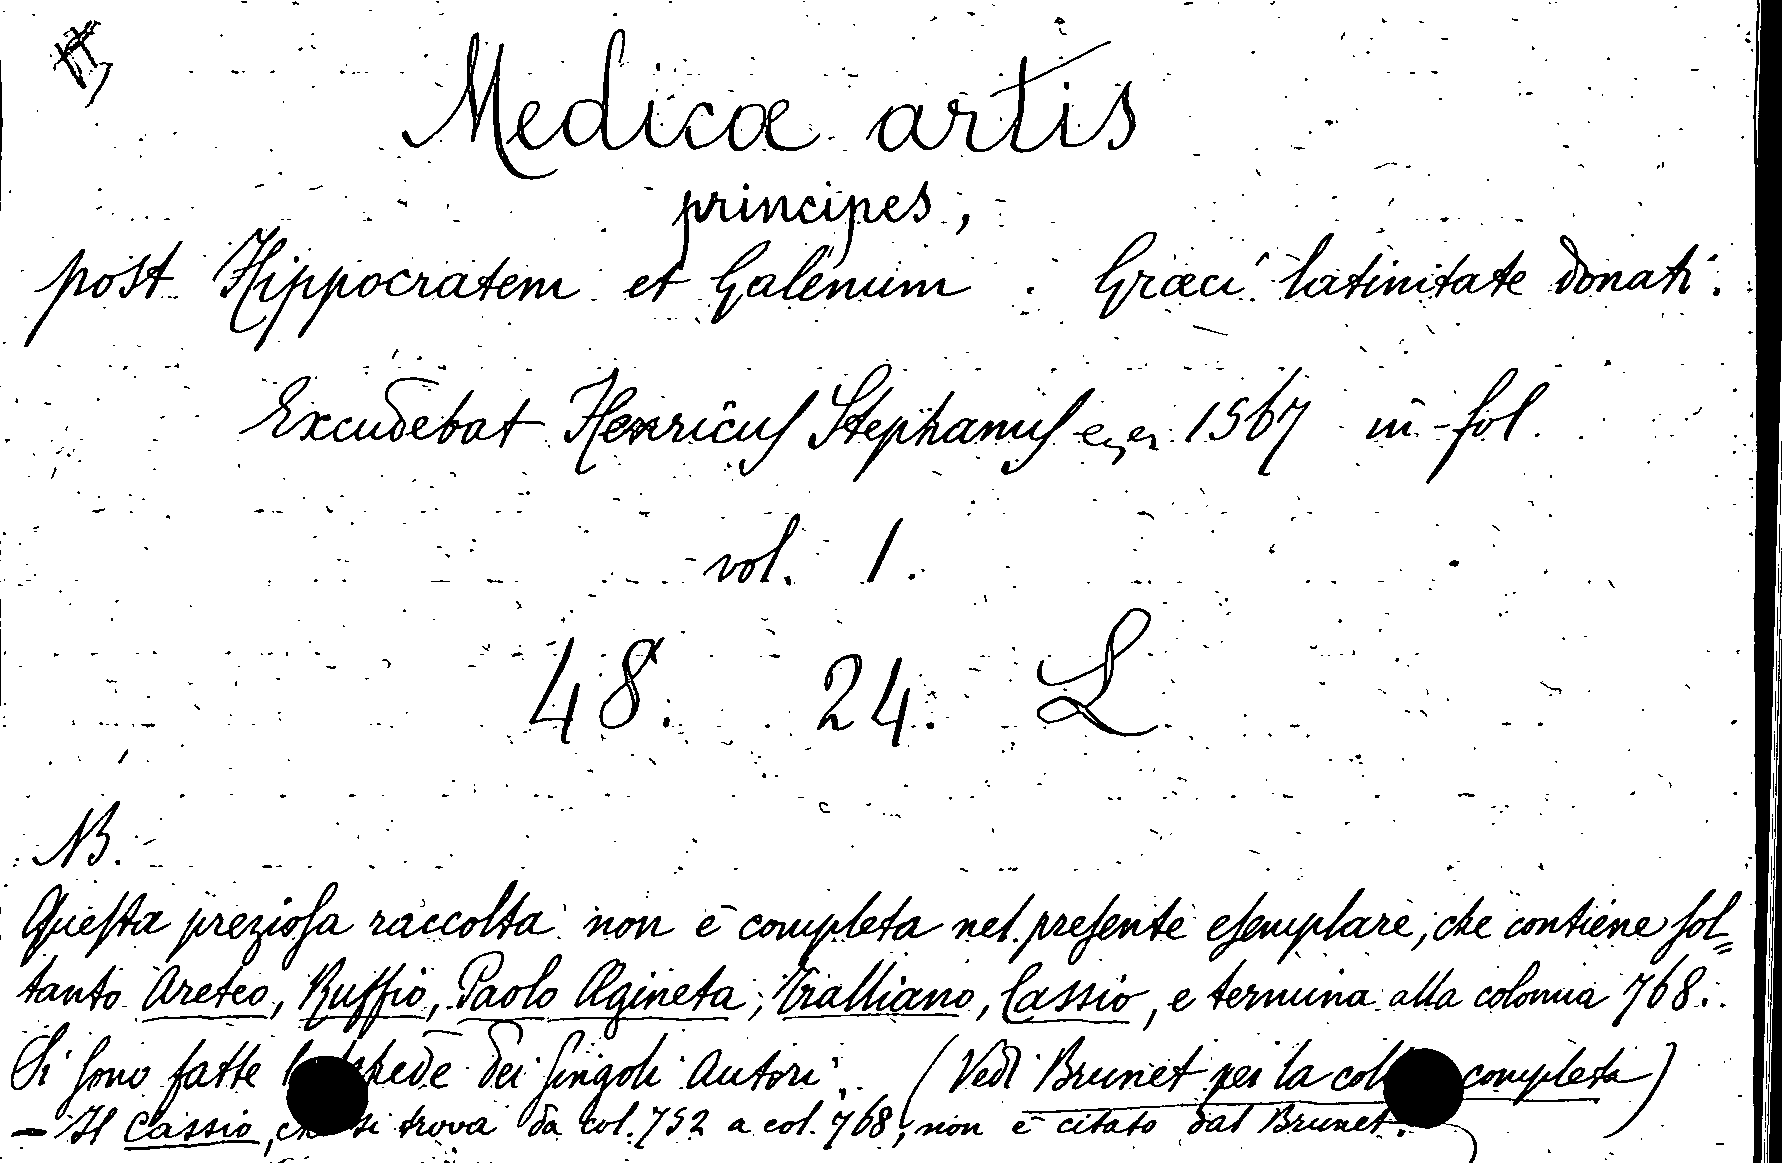 Medicæ artis
principes,
post Hippocratem et Galenum. Græci latinitate donati.
Excudebat Henricus Stephanus 1567 in-fol.
vol. 1.
48. 24. L
NB.
Questa preziosa raccolta non è completa nel presente esemplare, che contiene sol=
tanto Areteo, Ruffio, Paolo Ægineta, Tralliano, Cassio, e termina alla colonna 768.
Si sono fatte dei singoli Autori. (Vedi Brunet per la completa)
- Il Cassio, si trova da col. 752 a col. 768, non è citato dal Brunet.